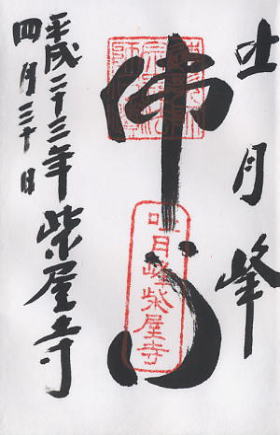 吐月峰
佛心
吐月峰柴屋寺
平成二十三年柴屋寺
四月三十日